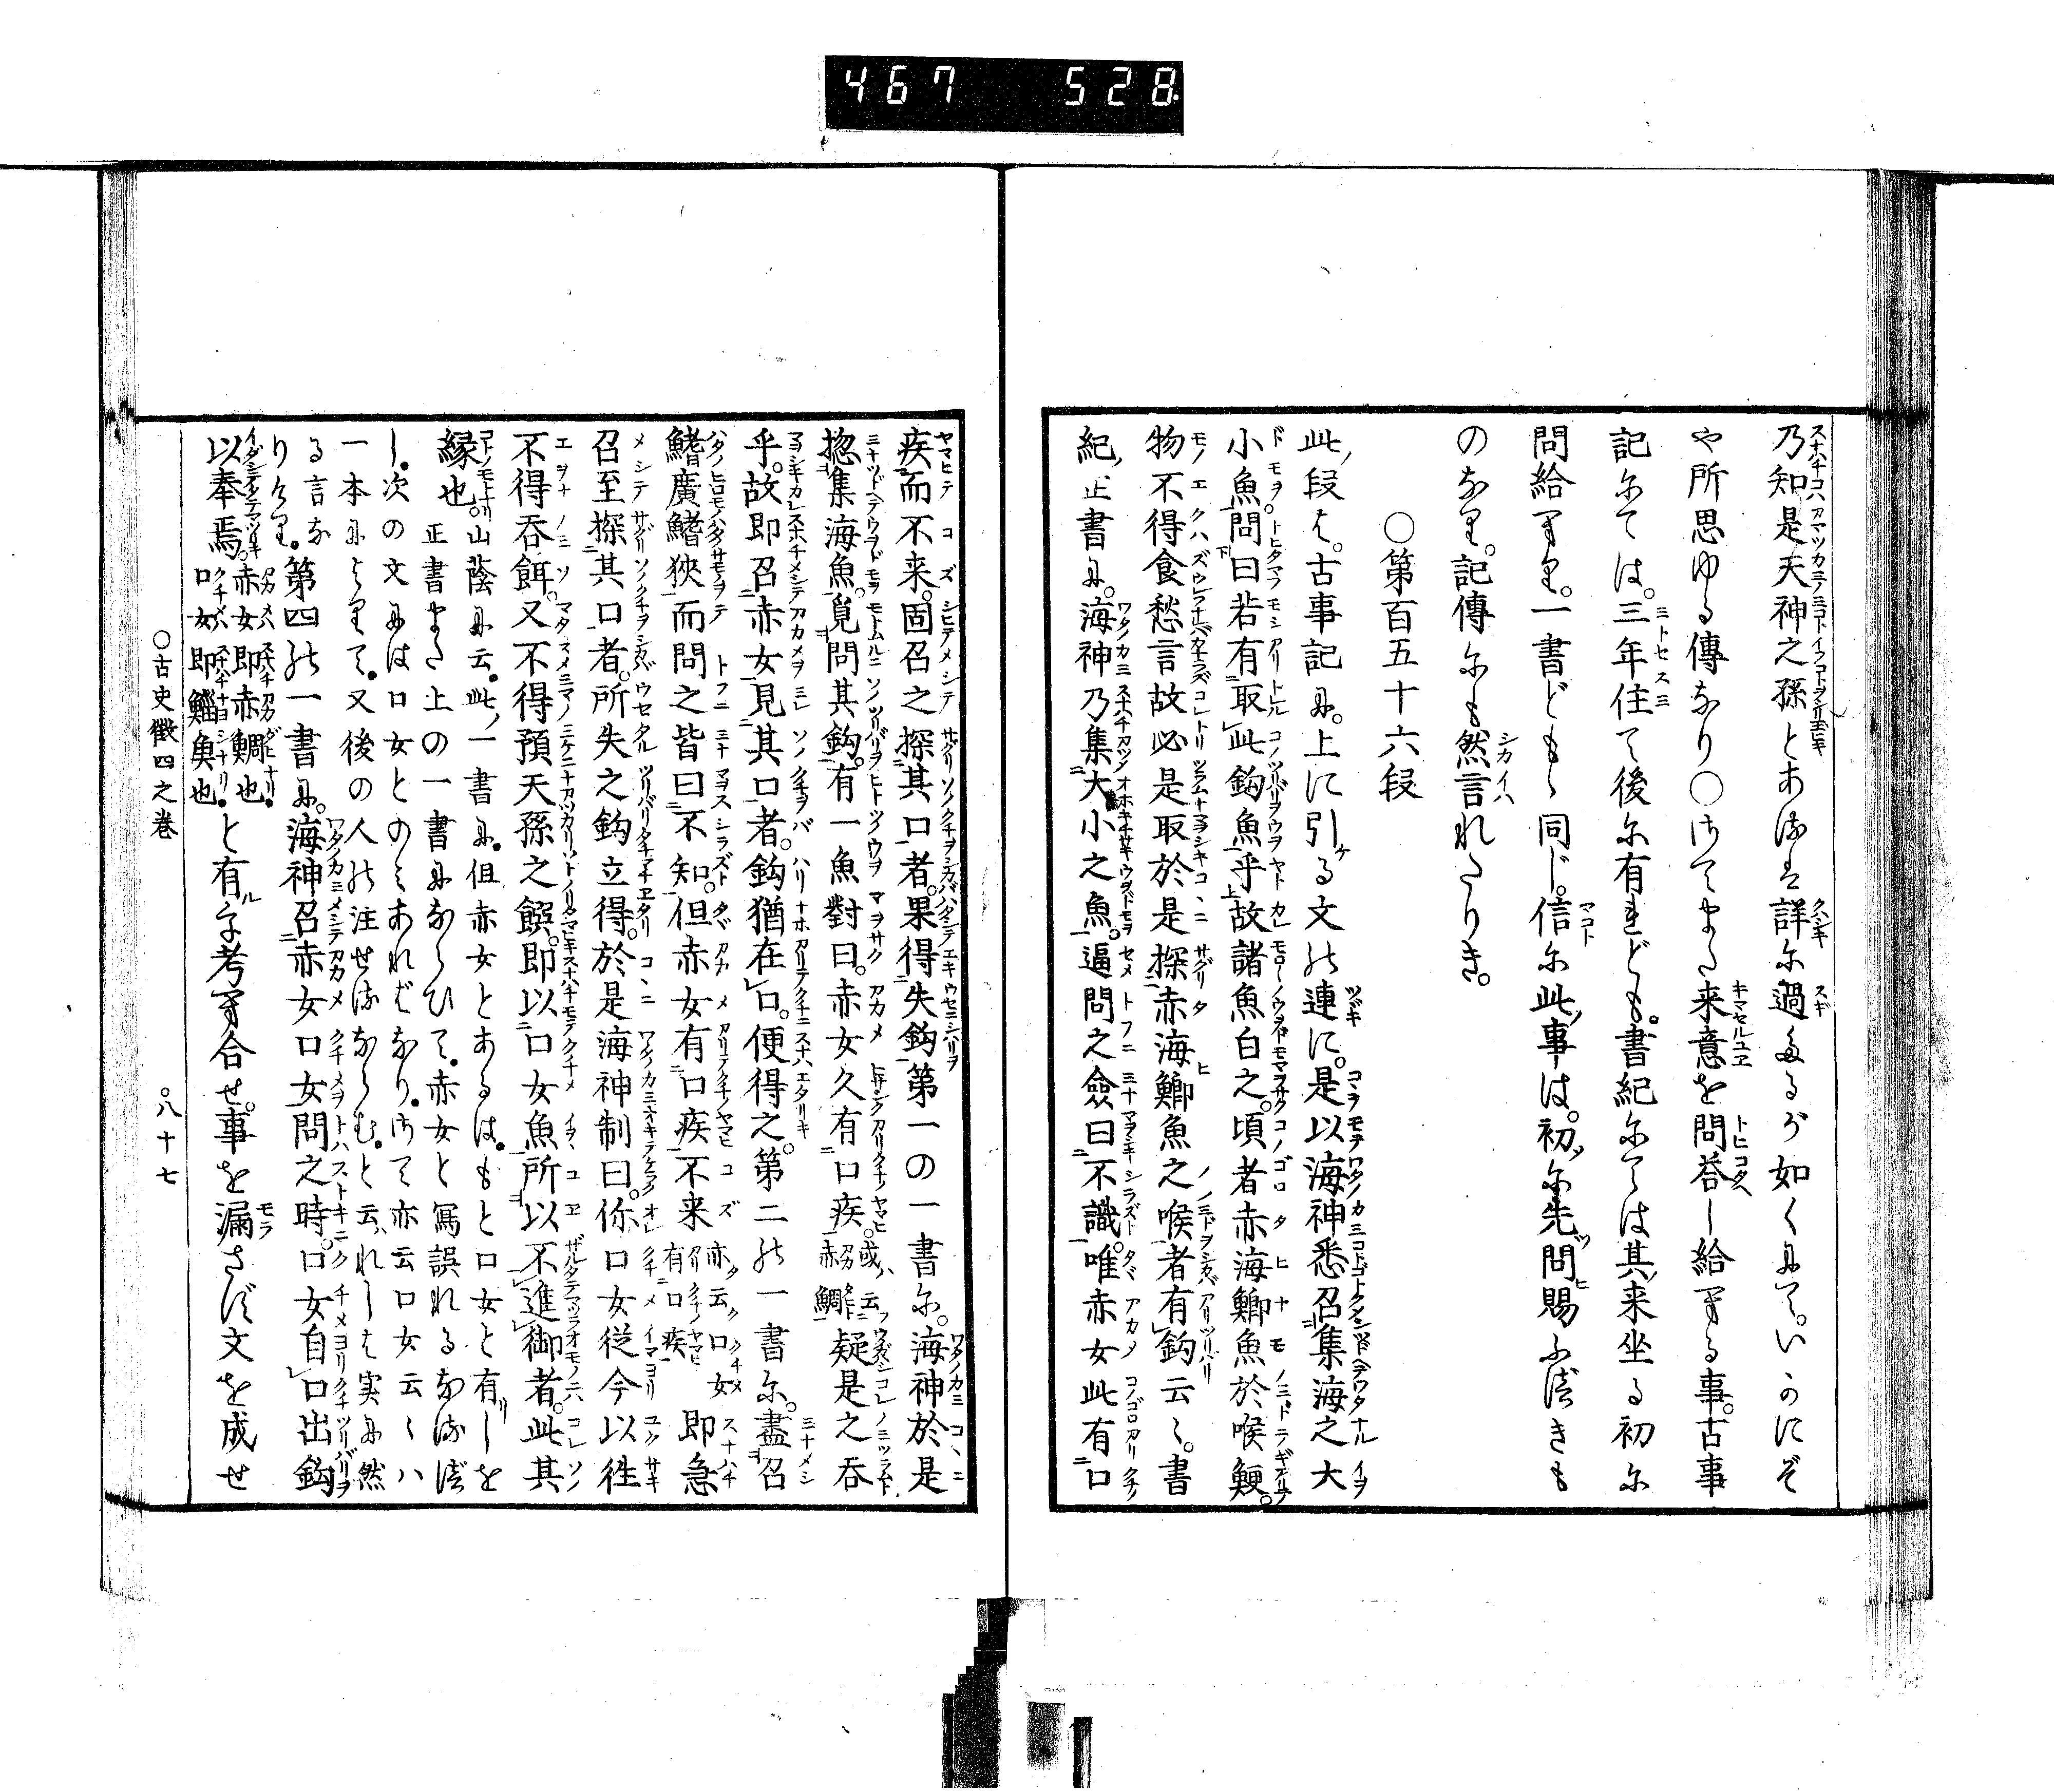 467 528
乃知是天神之孫とある は詳に過たるが如くにて。いかにぞ
や所思ゆる傳なり○さてまた来意を問答し給へる事。古事
記にては。三年住て後に有れども。書紀にては其来坐る初に
問給へり。一書ども同じ。信に此事は。初に先問賜ふべきも
のなり。記傳にも然言れたりき。
○第百五十六段
此段は。古事記に。上に引る文の連に。是以海神悉召集海之大
小魚問曰若有取此鈎魚乎故諸魚白之。頃者赤海鯽魚於喉鯁。
物不得食愁言故必是取於是探赤海鯽魚之喉者有鈎云〻。書
紀正書に。海神乃集大小之魚。逼問之僉曰不識。唯赤女此有口
疾而不来。固召之探其口者。果得失鈎第一の一書に。海神於是
惣集海魚。覓問其鈎。有一魚對曰。赤女久有口疾。或云赤鯛疑是之呑
乎。故即召赤女見其口者。鈎猶在口。便得之。第二の一書に。盡召
鰭廣鰭狹而問之皆曰不知。但赤女有口疾不来亦云口女有口疾即急
召至探其口者。所失之鈎立得。於是海神制曰。你口女従今以徃
不得呑餌。又不得預天孫之饌。即以口女魚所以不進御者。此其
縁也。山蔭に云。此一書に。但赤女とあるは。もと口女と有しを
正書また上の一書にならひて。赤女と写誤れるなるべ
し。次の文には口女とのみあればなり。さて亦云口女云〻ハ
一本によりて。又後の人の注せるならむ。と云れしは実に然
る言なりけり。第四の一書に。海神召赤女口女問之時。口女自口出鈎
以奉焉。赤女即赤鯛也。口女即鯔魚也。と有に考へ合せ。事を漏さず文を成せ
○古史徴四之巻 ○八十七